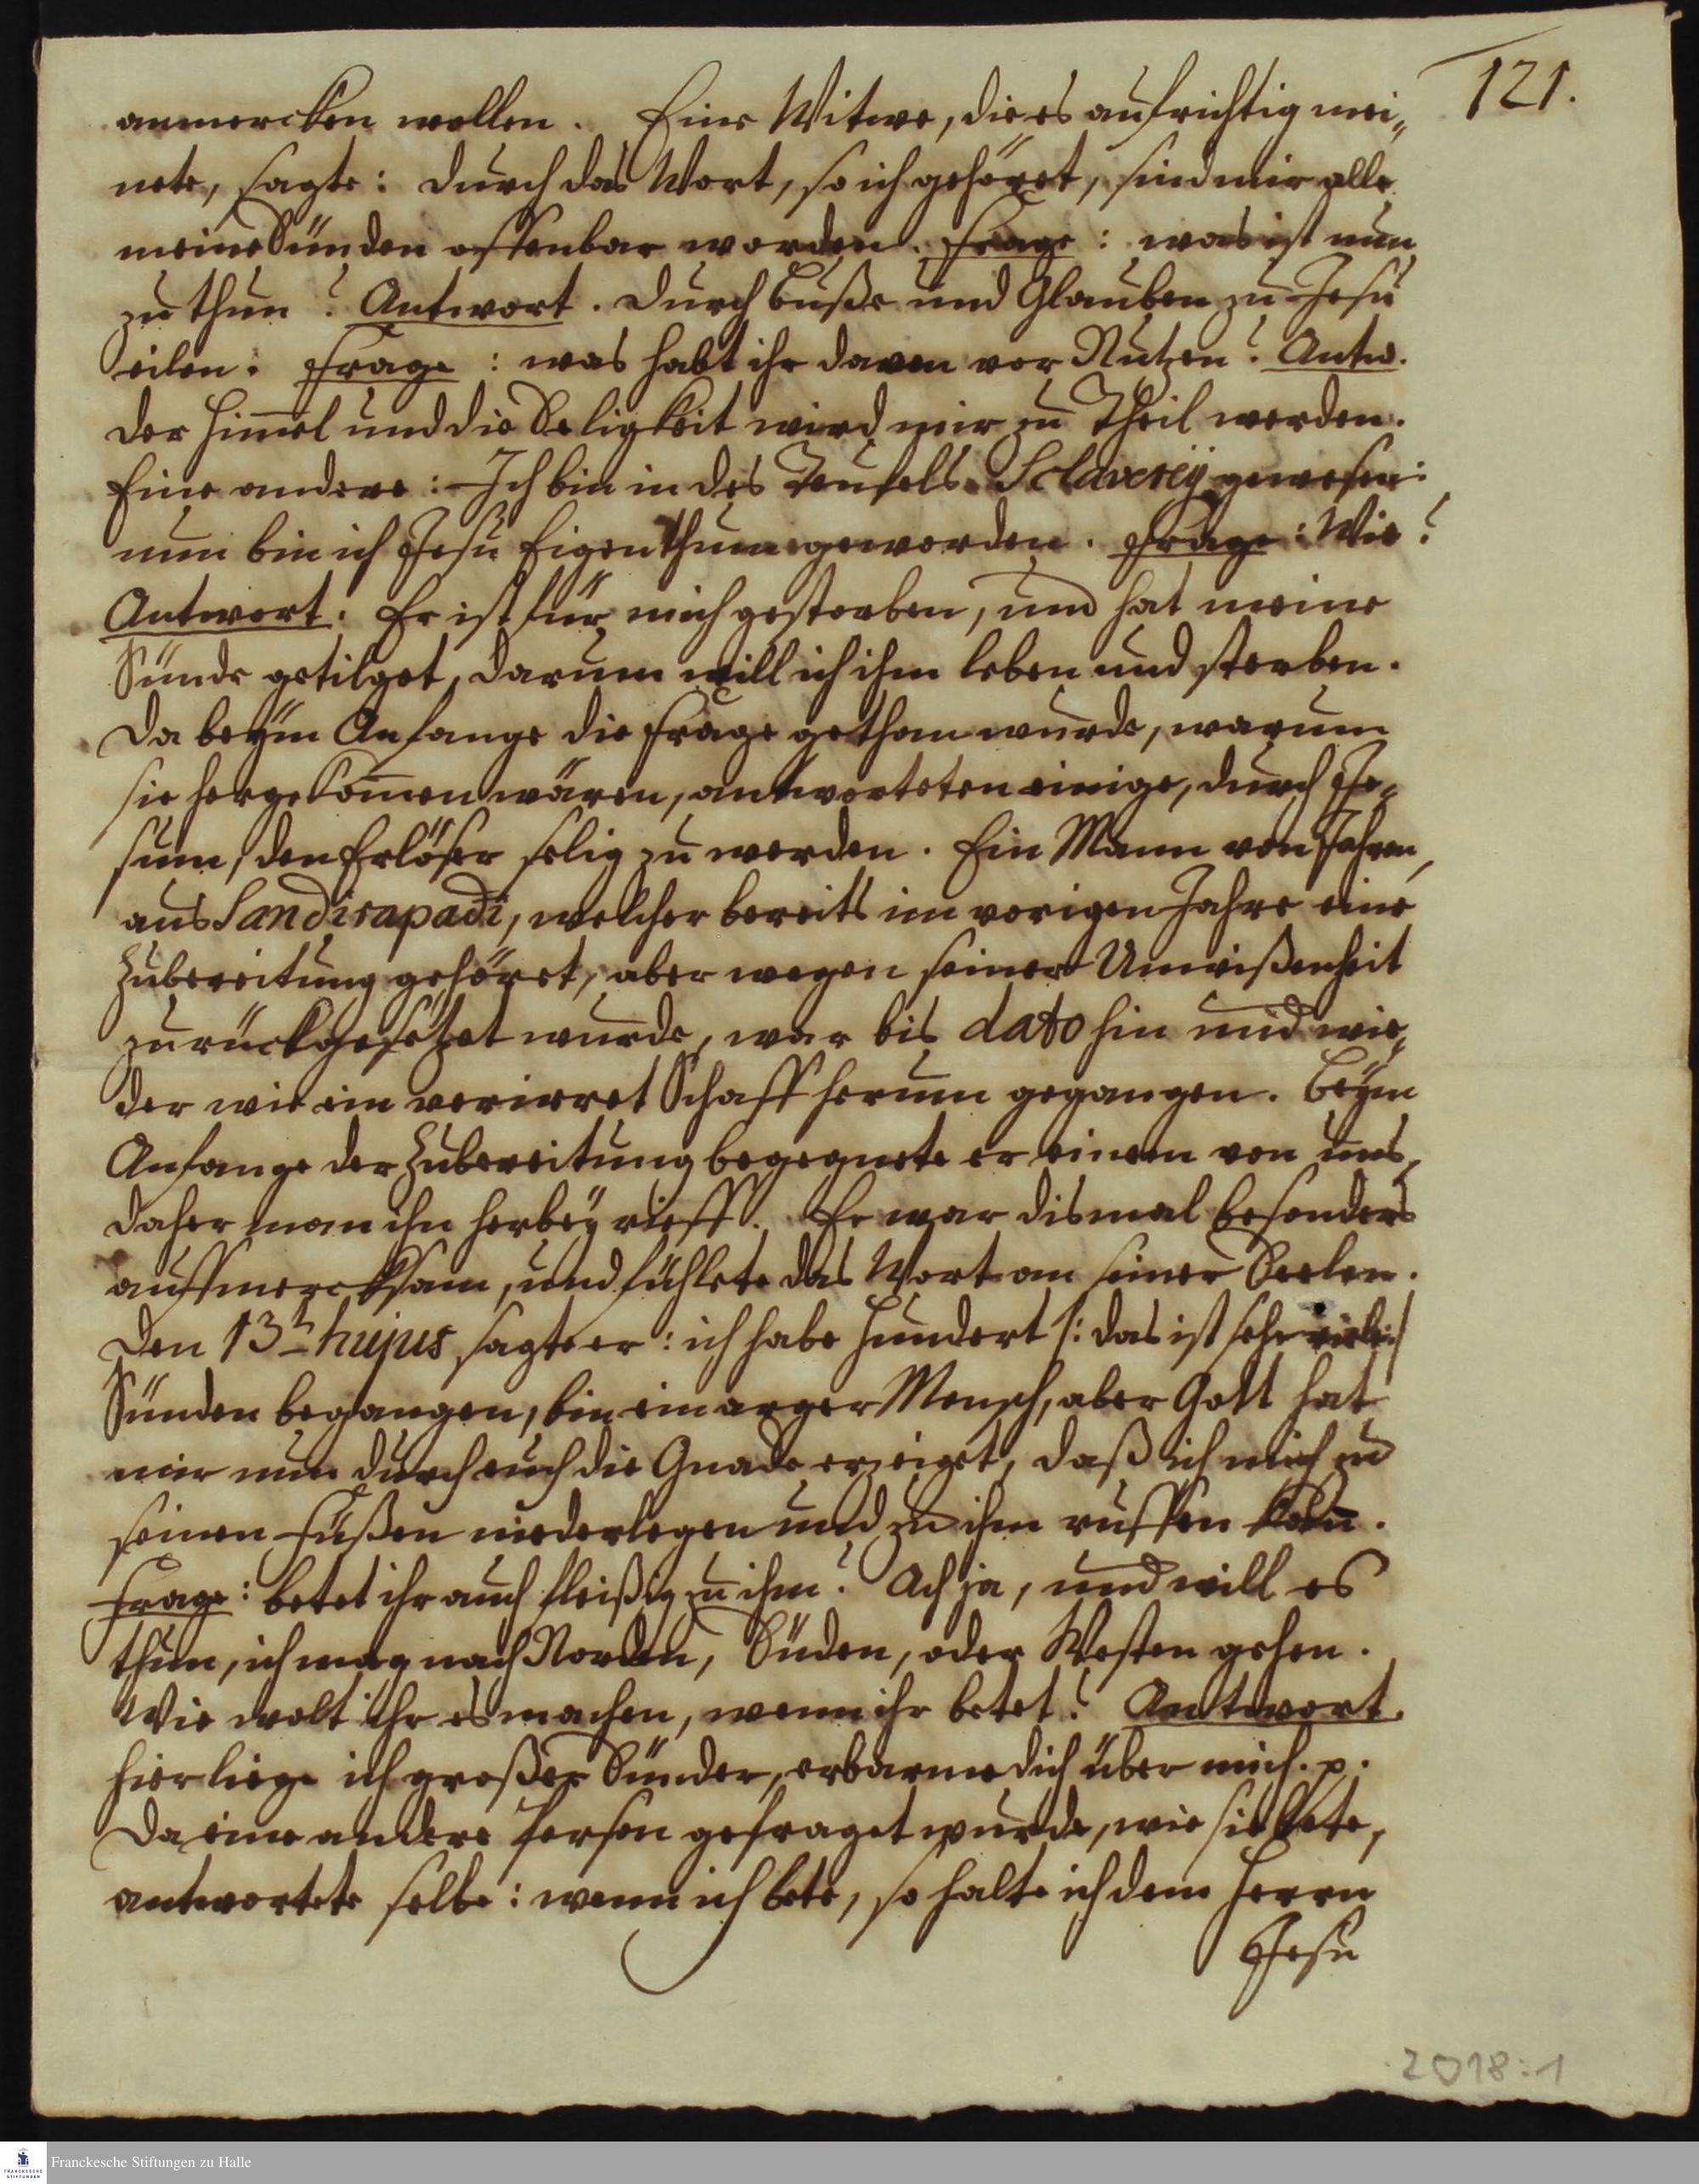 121.
anmercken wollen. Eine Witwe, die es aufrichtig mei„
nete, sagte: durch das Wort, so ich gehöret, sind mir alle
meine Sünden offenbar worden. Frage: was ist nun
zu thun? Antwort. durch Buße und Glauben zu Jesu
eilen. Frage: was habt ihr davon vor Nutzen? Antw.
der Him̄el und die Seligkeit wird mir zu Theil werden.
Eine andere: Ich bin in des Teufels Sclaverey gewesen:
nun bin ich Jesu Eigenthum geworden. Frage: Wie?
Antwort. Er ist für mich gestorben, und hat meine
Sünde getilget, darum will ich ihm leben und sterben.
Da beym Anfange die Frage gethan wurde, warum
sie hergekom̄en wären, antworteten einige, durch Je„
sum, den Erlöser selig zu werden. Ein Mann von Jahren,
aus Sandirapadi, welcher bereits im vorigen Jahre eine
Zubereitung gehöret, aber wegen seiner Unwißenheit
zurückgesetzet wurde, war bis dato hin und wie„
der wie ein verirret Schaff herum gegangen. Beym
Anfange der Zubereitung begegnete er einem von uns,
daher man ihn herbey rieff. Er war dismal besonders
auffmercksam, und fühlete das Wort an seiner Seelen.
den 13ⁿ hujus sagte er: ich habe hundert /: das ist sehr viele :/
Sünden begangen, bin ein arger Mensch, aber Gott hat
mir nun durch euch die Gnade erzeiget, daß ich mich zu
seinen Füßen niederlegen und zu ihm ruffen kan.
Frage: betet ihr auch fleißig zu ihm? Ach ja, und will es
thun, ich mag nach Norden, Süden, oder Westen gehen.
Wie wolt ihr es machen, wenn ihr betet? Antwort.
hier liege ich großer Sünder, erbarme dich über mich. p.
Da eine andere Person gefraget wurde, wie sie bete,
antwortete selbe: wenn ich bete, so halte ich dem Herrn
Jesu
2018:1
FRANCKESCHE STIFTUNGEN
Franckesche Stiftungen zu Halle